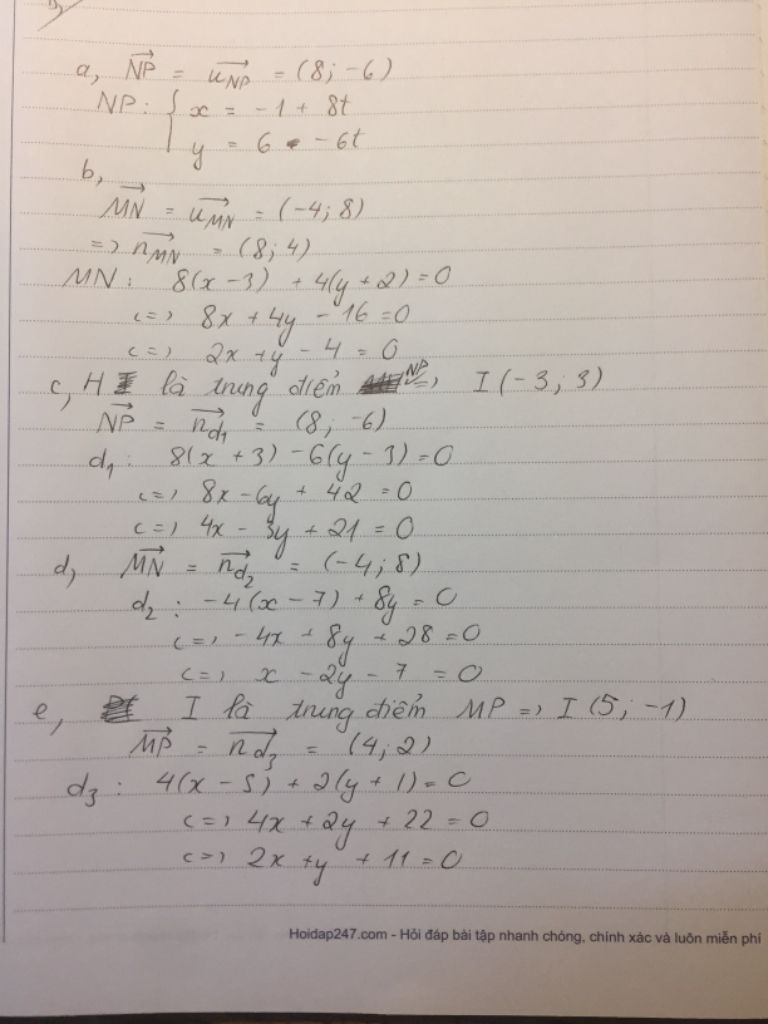 a, NP = uNP = (8; -6)
NP: { x = -1 + 8t
y = 6 - 6t
b,
MN = uMN = (-4; 8)
=> nMN = (8; 4)
MN: 8(x - 3) + 4(y + 2) = 0
<=> 8x + 4y - 16 = 0
<=> 2x + y - 4 = 0
c, H là trung điểm NP => I(-3; 3)
NP = nd1 = (8; -6)
d1: 8(x + 3) - 6(y - 3) = 0
<=> 8x - 6y + 42 = 0
<=> 4x - 3y + 21 = 0
d, MN = nd2 = (-4; 8)
d2: -4(x - 7) + 8y = 0
<=> -4x + 8y + 28 = 0
<=> x - 2y - 7 = 0
e, I là trung điểm MP => I(5; -1)
MP = nd3 = (4; 2)
d3: 4(x - 5) + 2(y + 1) = 0
<=> 4x + 2y + 22 = 0
<=> 2x + y + 11 = 0
Hoidap247.com - Hỏi đáp bài tập nhanh chóng, chính xác và luôn miễn phí